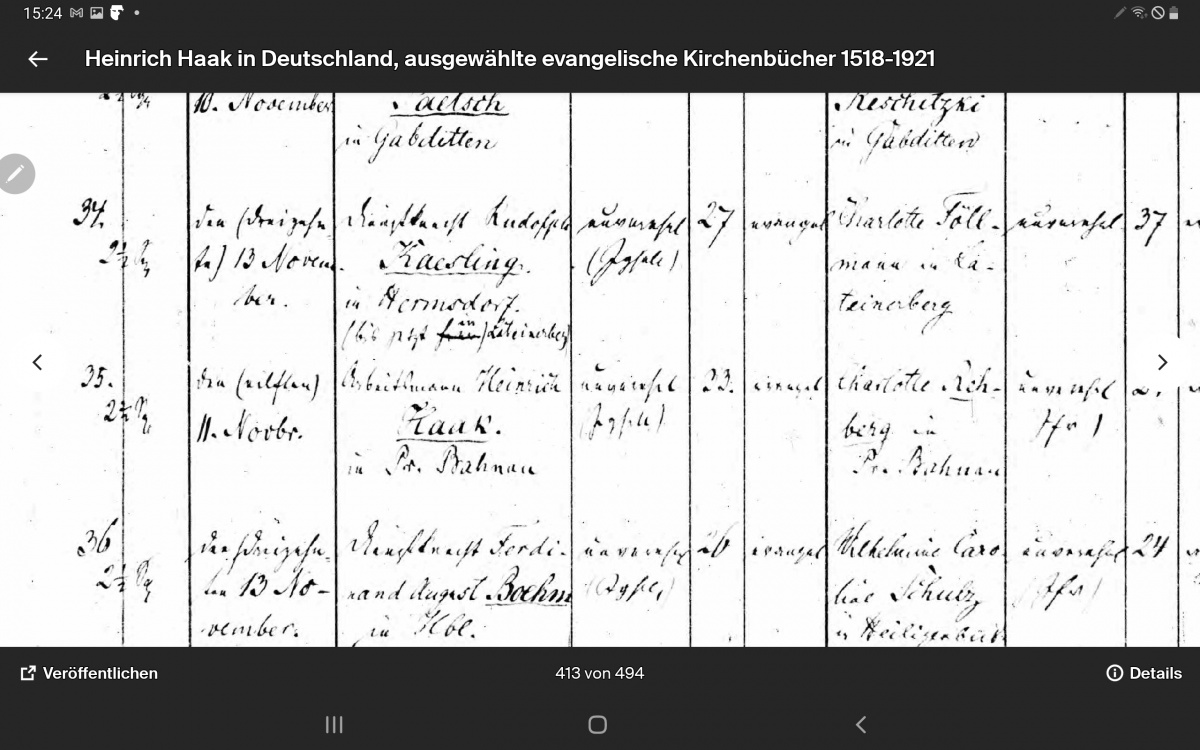 15:24
Heinrich Haak in Deutschland, ausgewählte evangelische Kirchenbücher 1518-1921
10. November
Paetsch
in Gabditten
Reschitzki
in Gabditten
34.
den (dreizehn-
te) 13 Novem-
ber.
Dienstknecht Rudolph
Kaesling.
in Hermsdorf.
(bis jetzt in Lateinerberg)
unverehel
(Jgsell)
27
evangel
Charlotte Föll-
mann in La-
teinerberg
unverehel.
37
35.
den (eilften)
11. Novbr.
Arbeitsmann Heinrich
Haak.
in Pr. Bahnau
unverehel
(Jgsell)
23.
evangel
Charlotte Reh-
berg in
Pr. Bahnau
unverehel
Jfr)
36
den (dreizehn-
ten 13 No-
vember.
Dienstknecht Ferdi-
nand August Boehm
in Hbl.
unverehel
(Jgsell)
26
evangel
Wilhelmine Caro-
line Schulz
in Heiligenbeil
unverehel
(Jfr)
24
Veröffentlichen
413 von 494
Details